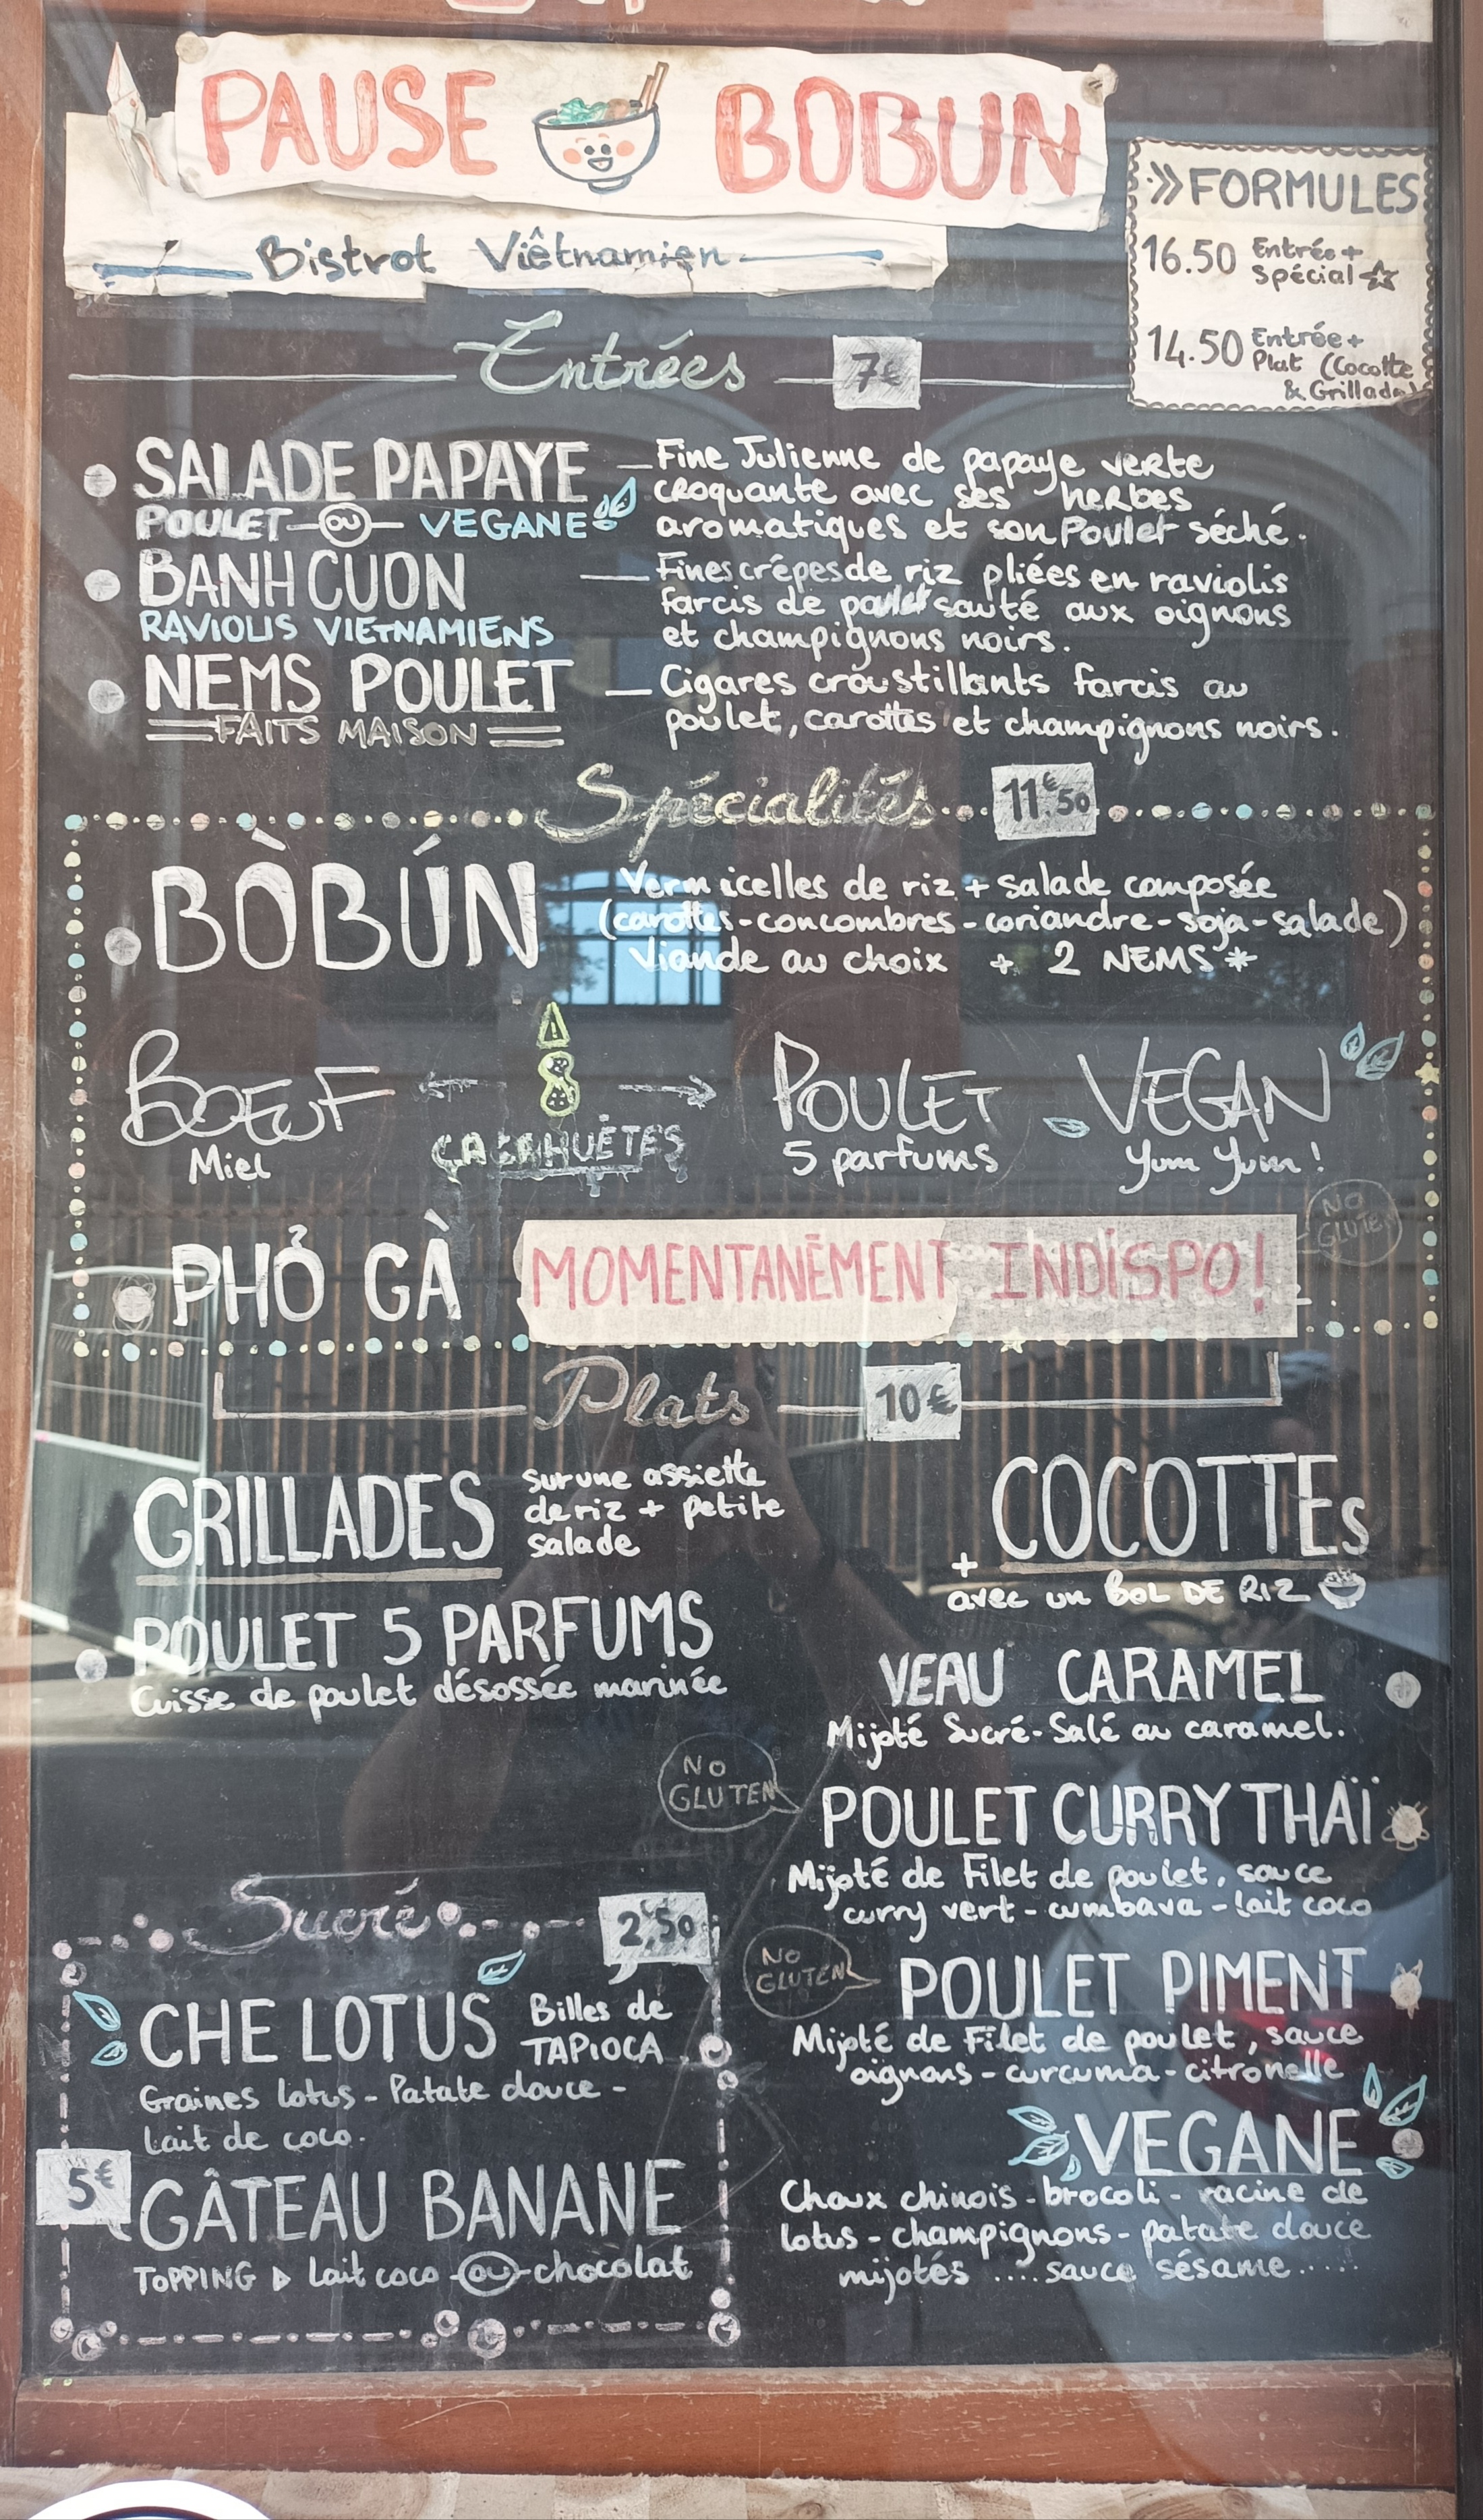 PAUSE BOBUN
Bistrot Viêtnamien
>> FORMULES
16.50 Entrée +
Spécial ☆
14.50 Entrée +
Plat (Cocotte
& Grillade)
Entrées 7€
SALADE PAPAYE
POULET OU VEGANE
Fine Julienne de papaye verte
croquante avec ses herbes
aromatiques et son Poulet séché.
BANH CUON
RAVIOLIS VIETNAMIENS
Fines crêpes de riz pliées en raviolis
farcis de poulet sauté aux oignons
et champignons noirs.
NEMS POULET
FAITS MAISON
Cigares croustillants farcis au
poulet, carottes et champignons noirs.
Spécialités 11€.50
BÒBÚN
Vermicelles de riz + salade composée
(carottes - concombres - coriandre - soja - salade)
Viande au choix + 2 NEMS *
BOEUF
Miel
CACAHUÈTES
POULET
5 parfums
VEGAN
Yum Yum !
NO
GLUTEN
PHỞ GÀ
MOMENTANÉMENT INDISPO!
Plats 10€
GRILLADES
sur une assiette
de riz + petite
salade
POULET 5 PARFUMS
Cuisse de poulet désossée marinée
COCOTTEs
+
avec un BOL DE RIZ
VEAU CARAMEL
Mijoté Sucré-Salé au caramel.
NO
GLUTEN
POULET CURRY THAÏ
Mijoté de Filet de poulet, sauce
curry vert - cumbava - lait coco
NO
GLUTEN
POULET PIMENT
Mijoté de Filet de poulet, sauce
oignons - curcuma - citronelle
VEGANE
Choux chinois - brocoli - racine de
lotus - champignons - patate douce
mijotés .... sauce sésame .....
Sucré 2€.50
CHE LOTUS
Billes de
TAPIOCA
Graines lotus - Patate douce -
lait de coco.
5€
GÂTEAU BANANE
TOPPING ▷ lait coco OU chocolat